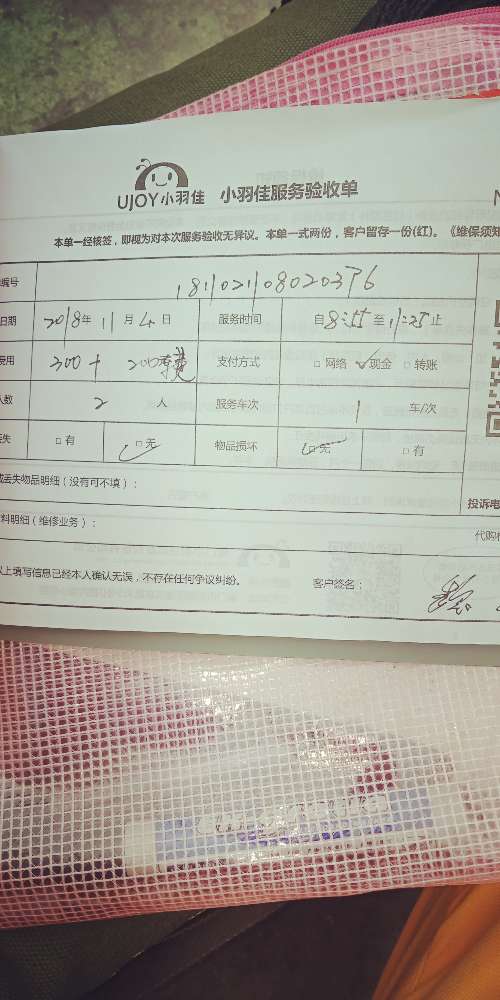 UJOY小羽佳 小羽佳服务验收单
本单一经核签，即视为对本次服务验收无异议。本单一式两份，客户留存一份(红)。《维保须知
编号 1811021108020376
日期 2018年 11月 4日 服务时间 自8:55至11:25止
费用 300+200 支付方式 □网络 ✓现金 □转账
人数 2 人 服务车次 1 车/次
丢失 □有 □无 物品损坏 □无 □有
或丢失物品明细（没有可不填）：
投诉电
料明细（维修业务）：
代购
以上填写信息已经本人确认无误，不存在任何争议纠纷。 客户签名：